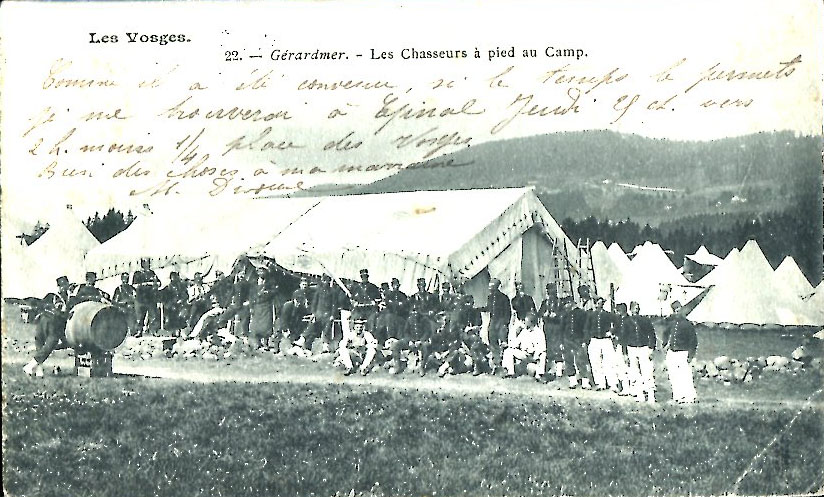 Les Vosges.
22. — Gérardmer. - Les Chasseurs à pied au Camp.
Comme il a été convenu, si le temps le permets
je me trouverai à Epinal Jeudi 25 ct. vers
2 h. moins 1/4 place des Vosges
Bien des choses à ma marraine
M.